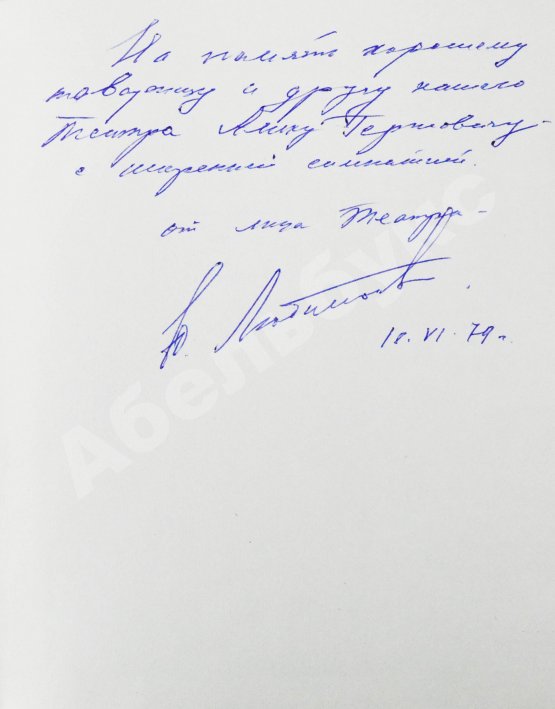 На память хорошему
товарищу и другу нашего
Театра Алику Герзговичу -
с искренней симпатией.
от лица Театра -
Ю. Любимов
10.VI.79 г.
Абельбукс